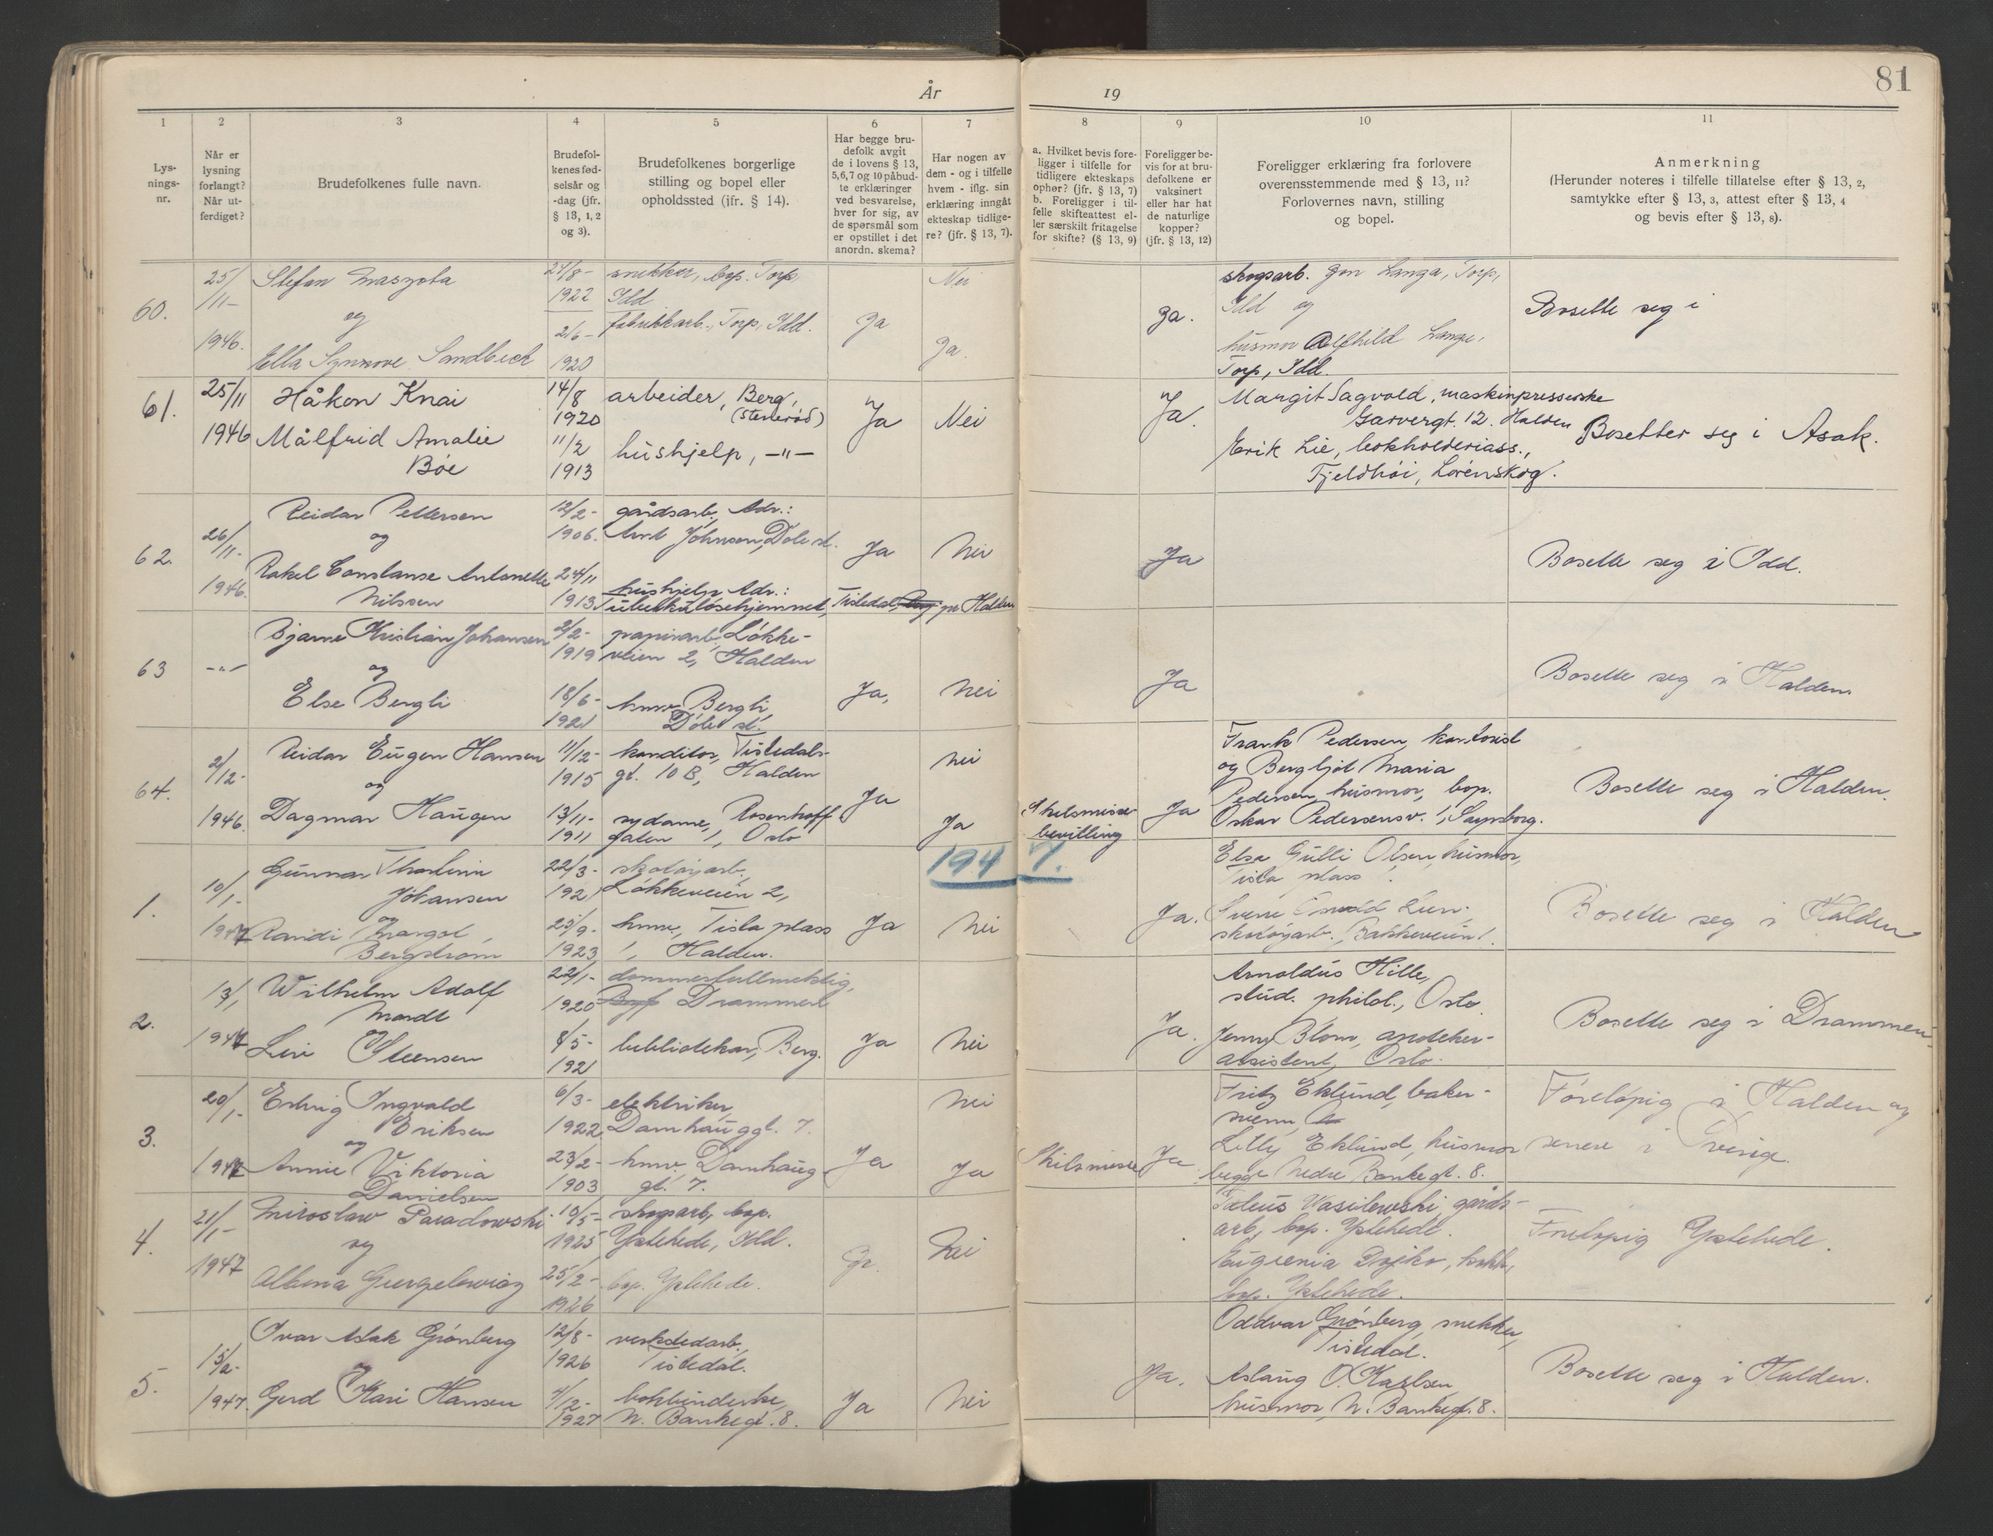 År
19
81
1
2
3
4
5
6
7
8
9
10
11
Lys-
nings-
nr.
Når er
lysning
forlangt?
Når ut-
ferdiget?
Brudefolkenes fulle navn.
Brudefol-
kenes fød-
selsår og
-dag (jfr.
§ 13, 1, 2
og 3).
Brudefolkenes borgerlige
stilling og bopel eller
opholdssted (jfr. § 14).
Har begge bru-
defolk avgit
de i lovens § 13,
5, 6, 7 og 10 påbud-
te erklæringer
ved besvarelse,
hver for sig, av
de spørsmål som
er opstillet i det
anordn. skema?
Har nogen av
dem - og i tilfelle
hvem - iflg. sin
erklæring inngåt
ekteskap tidlige-
re? (jfr. § 13, 7).
a. Hvilket bevis fore-
ligger i tilfelle for
tidligere ekteskaps
ophør? (jfr. § 13, 7)
b. Foreligger i til-
felle skifteattest el-
ler særskilt fritagelse
for skifte? (§ 13, 9)
Foreligger be-
vis for at bru-
defolkene er
vaksinert
eller har hat
de naturlige
kopper?
(jfr. § 13, 12)
Foreligger erklæring fra forlovere
overensstemmende med § 13, 11?
Forlovernes navn, stilling
og bopel.
Anmerkning
(Herunder noteres i tilfelle tillatelse efter § 13, 2,
samtykke efter § 13, 3, attest efter § 13, 4
og bevis efter § 13, 8).
60.
25/
11-
1946.
Stefan Maszota
og
Ella Synnøve Sandbeck
27/8-
1922
2/6-
1920
snekker, bop. Torp,
Idd
fabrikkarb., Torp, Idd.
Ja
Nei
Ja.
Ja.
skogsarb. Jon Langa, Torp,
Idd og
husmor Alfhild Lange,
Torp, Idd.
Bosette seg i
61.
25/11
1946
Håkon Knai
Målfrid Amalie
Bøe
14/8
1920
11/2
1913
arbeider, Berg,
(Stenerød)
hushjelp, -"-
Ja
Nei
Ja.
Margit Sagvold, maskinpresserske
Garvergt. 12. Halden
Erik Lie, bokholderiass.,
Fjeldhøi, Lørenskog.
Bosetter seg i Asak.
62.
26/
11-
1946
Reidar Pettersen
og
Rakel Constanse Antonette
Nilssen
12/2-
1906.
24/11
1913
gårdsarb, Adr.:
Johnsen, Dole st.
hushjelp Adr.:
Tuberkuløsehjemmet, Tistedal, pr Halden
Ja
Nei
Ja
Bosette seg i Idd.
63
-"-
Bjarne Kristian Johansen
og
Else Bergli
2/2-
1919
18/6-
1921
papirarb, Løkke-
veien 2, Halden
hmv. Bergli,
Dole st.
Ja,
Nei
Ja
Bosette seg i Halden
64.
2/
12-
1946.
Reidar Eugen Hansen
og
Dagmar Haugen
11/12-
1915
13/11-
1911
konditor, Tistedals-
gt. 10 B, Halden
sydame, Rosenhoff
gaten 1, Oslo
Ja
Nei
Ja
Skilsmisse
bevilling
Ja
Frank Pedersen, kontorist
og Bergljot Maria
Pedersen, husmor, bop.
Oskar Pedersensv. 1, Sarpsborg.
Bosette seg i Halden.
1947.
1.
10/
1-
1947
Gunnar Thorleinn
Johansen
og
Randi Margot
Bergstrøm
22/3-
1921
25/9-
1923
skotøyarb,
Løkkeveien 2,
hmv, Tista plass
1, Halden.
Ja
Nei
Ja.
Else Gulli Olsen, husmor,
Tista plass 1.
Lien,
skotøyarb. Bakkeveien 1.
Bosette seg i Halden
2.
13/
1
1947
Wilhelm Adolf
Mordt
Liv Steensen
22/1-
1920
8/5-
1921
dommerfullmektig,
Drammen
bibliotekar, Berg.
Ja
Nei
Ja.
Arnoldus Hille,
stud. philol., Oslo.
Jenny Blom, apoteker-
assistent, Oslo.
Bosette seg i Drammen.
3.
20/
1-
1947
Erling Ingvald
Eriksen
og
Annie Viktoria
Danielsen
6/3-
1922
23/2-
1903
elektriker,
Damhauggt. 7.
hmv. Damhaug
gt. 7.
Ja
Nei
Ja
Skilsmisse
Ja
Fritz Eklund, baker-
svenn,
Lilly Eklund, husmor
begge Nedre Bankegt. 8.
Foreløpig i Halden og
senere i Sverige.
4.
21/
1-
1947
Miroslaw Paradowski
og
Albina Gurgelewicz
10/5-
1925
25/2-
1926
skogsarb, bop.
Ystehede, Idd.
bop. Ystehede.
Ja.
Nei
Tateus Wasilewski, gårds-
arb, bop. Ystehede.
Eugienia Dojko, kokk,
bop. Ystehede.
Foreløpig Ystehede.
5.
15/
2-
1947.
Ivar Asak Grønberg
og
Gerd Kari Hansen
12/8-
1926
4/2-
1927
verkstedarb,
Tistedal.
bokbinderske,
N. Bankegt. 8.
Ja
Nei
Ja.
Oddvar Grønberg, snekker,
Tistedal.
Aslaug O. Karlsen,
husmor, N. Bankegt. 8.
Bosette seg i Halden.